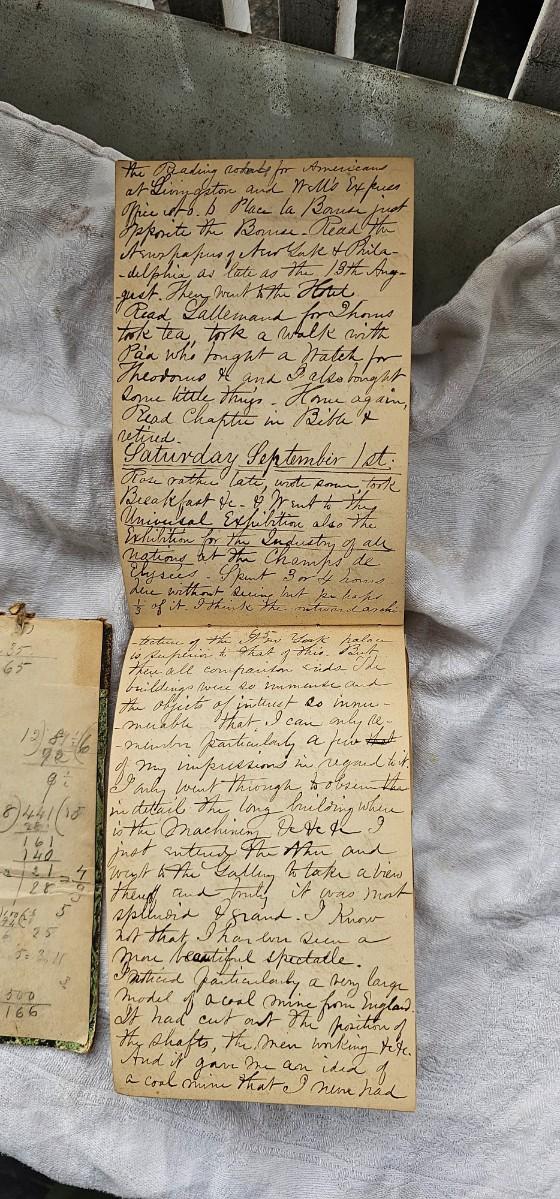 the Reading rooms for Americans
at Livingston and Well's Express
Office No. 8 Place la Bourse just
opposite the Bourse. Read the
Newspapers of New York & Phila-
-delphia as late as the 13th Aug-
gust. Then went to the Hotel.
Read Lallemand for 2 hours
took tea, took a walk with
Paa who bought a Watch for
Theodorus & and I also bought
some little things. Home again,
Read Chapter in Bible &
retired.
Saturday September 1st.
Rose rather late, wrote some, took
Breakfast &c. & Went to the
Universal Exhibition also the
Exhibition for the Industry of all
nations at the Champs de
Elysées. Spent 3 or 4 hours
here without seeing but perhaps
1/3 of it. I think the outward archi-
-tecture of the New York palace
is superior to that of this. But
then all comparison ends. The
buildings were so immense and
the objects of interest so innu-
-merable that I can only re-
-member particularly a few that
of my impressions in regard to it.
I only went through to observe the
in detail the long building where
is the Machinery &c &c &c I
just entered the other and
went to the Gallery to take a view
thereof and truly it was most
splendid & grand. I know
not that I have ever seen a
more beautiful spectacle.
I noticed particularly a very large
model of a coal mine from England.
It had cut out the position of
the shafts, the men working &c &c.
And it gave me an idea of
a coal mine that I never had
35
65
9 1/2
8)441(
161
140
21
28
4
5
25
500
166